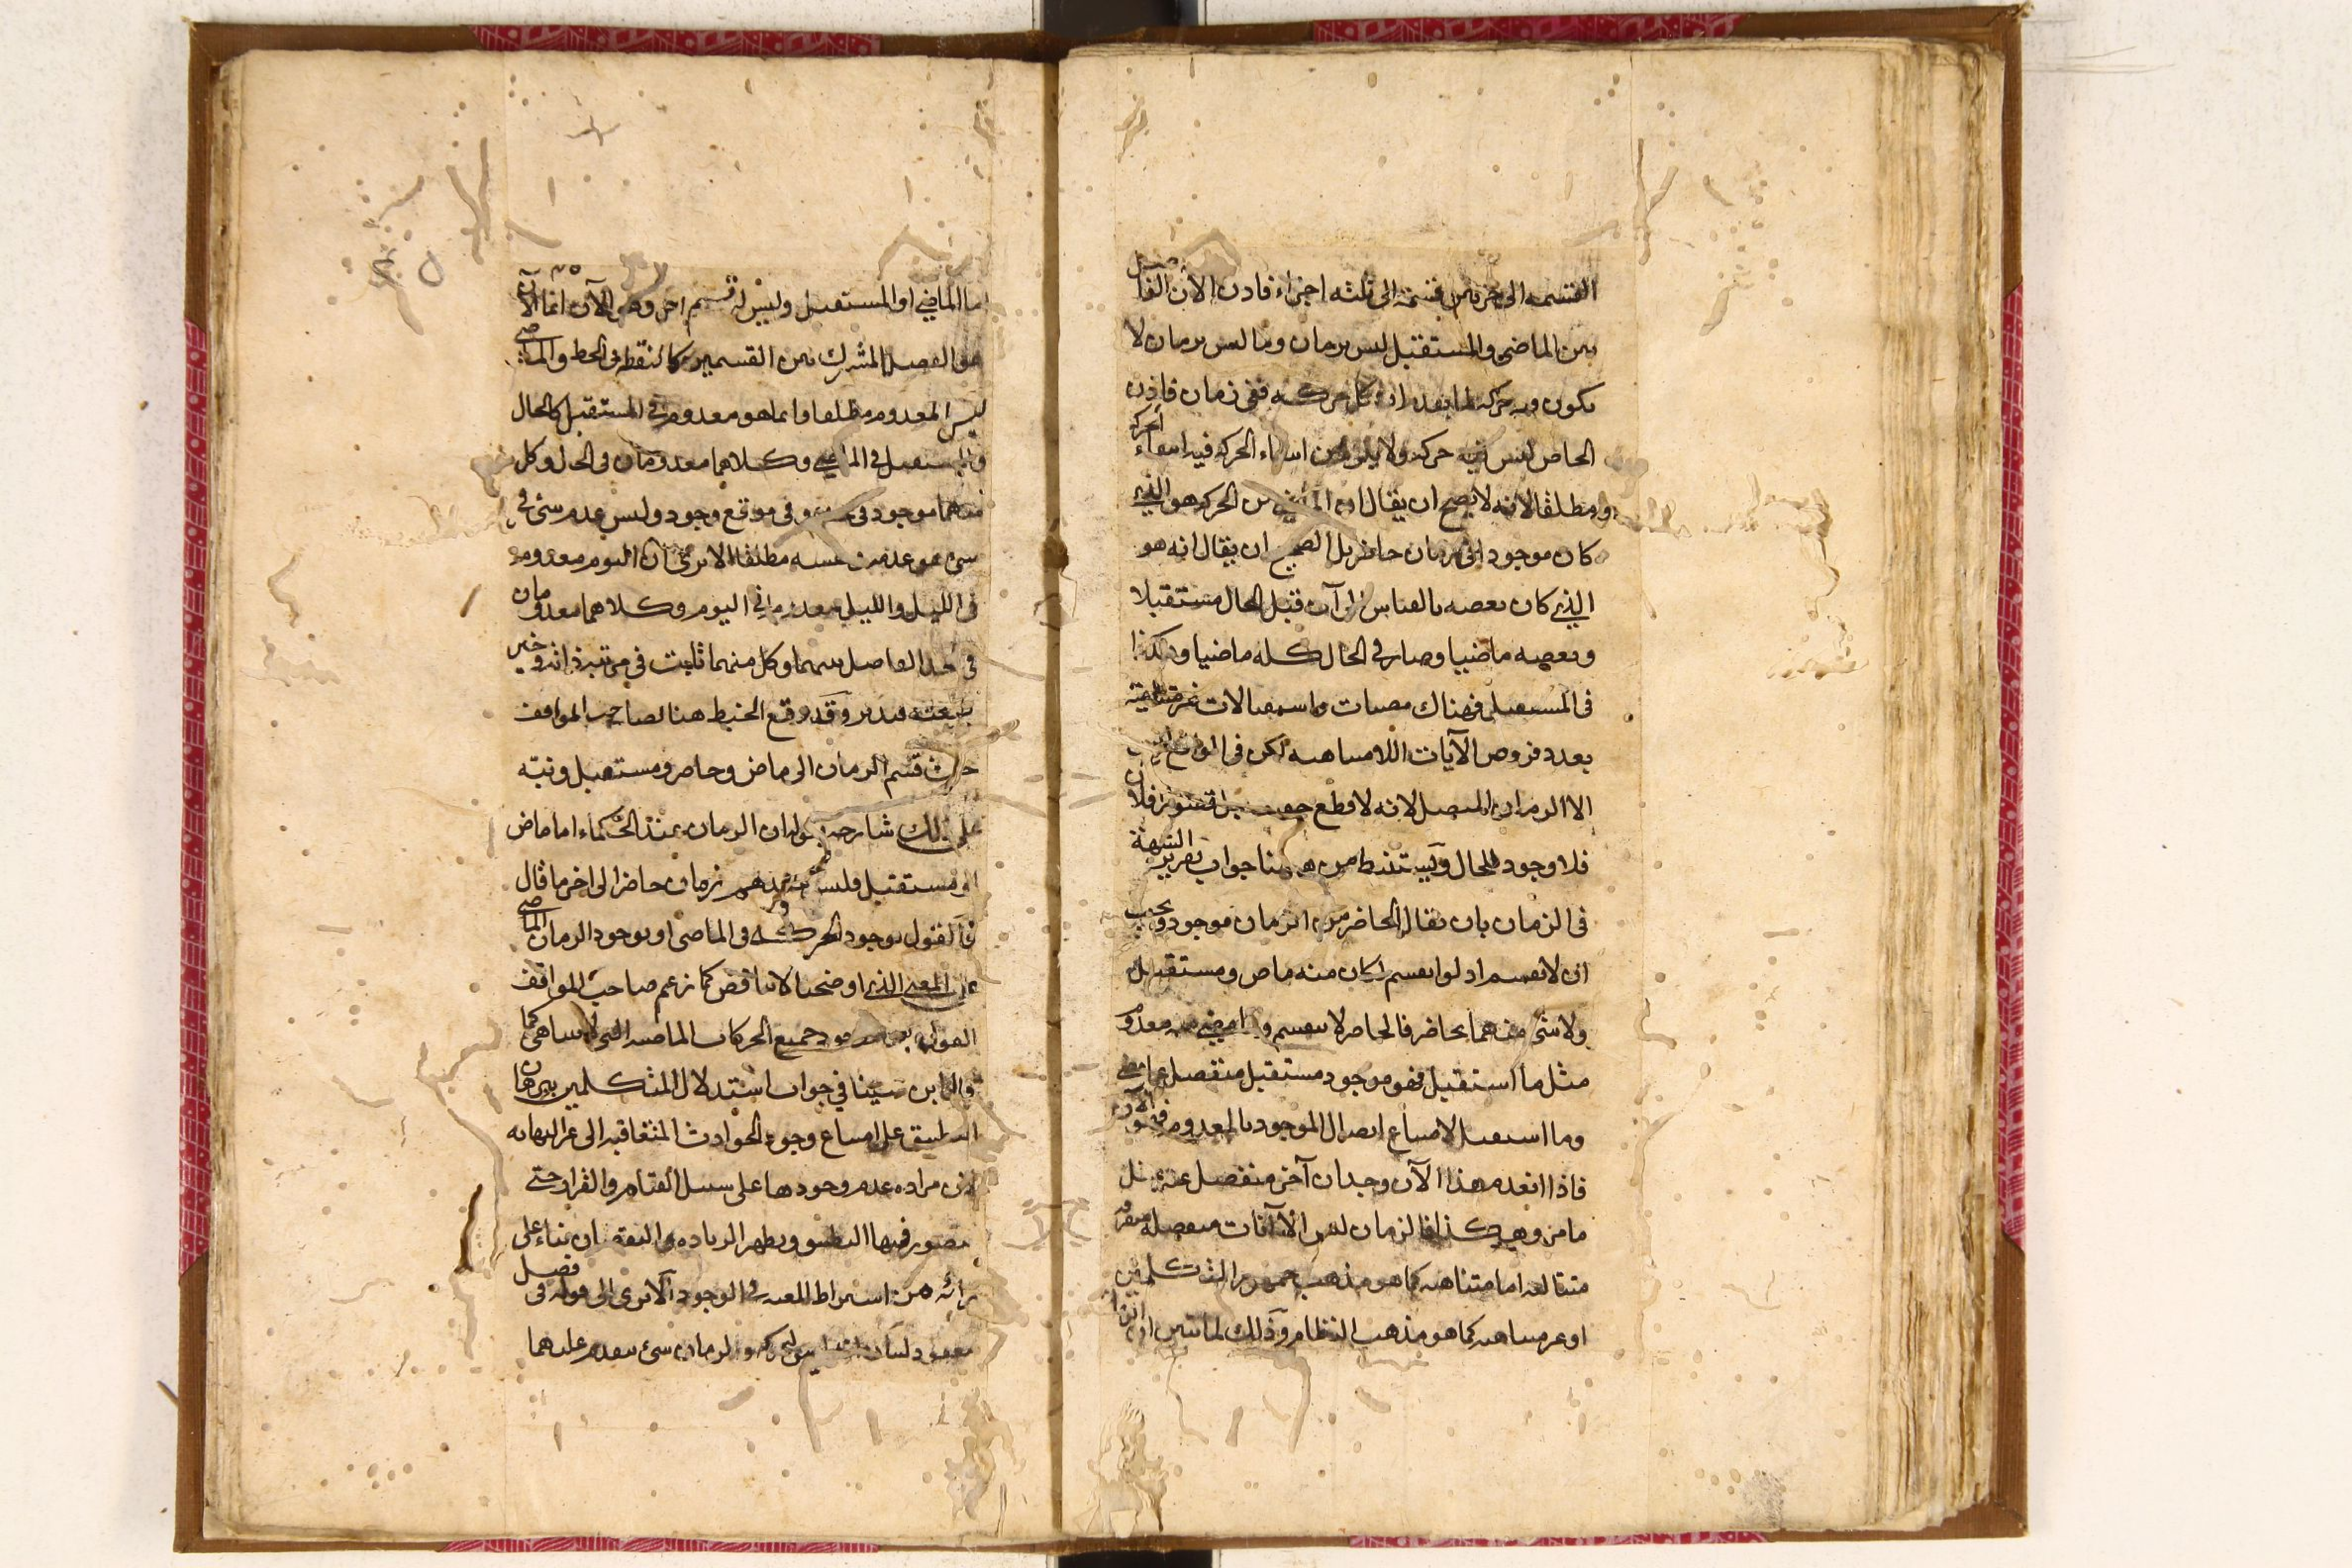 القسمه الى جزئين قسمة الى ثلثه اجزاء فاذن الآن الفاصل
بين الماضى والمستقبل ليس بزمان وما ليس بزمان لا
يكون فيه حركه لما بعد ان كل حركه ففى زمان فاذن
الحاضر ليس فيه حركه ولا يلزم من انتفاء الحركه فيه انتفاء الحركه
مطلقا لانه لا يصح ان يقال ان الماضى من الحركه هو الذي
كان موجودا فى زمان حاضر بل الصحيح ان يقال انه هو
الذي كان بعضه بالقياس الى آن قبل الحال مستقبلا
وبعضه ماضيا وصار فى الحال كله ماضيا وهكذا
فى المستقبل فهناك مضيات واستقبالات غير متناهية
بعدد فروض الآيات اللامتناهيه لكن فى الواقع ليس
الا الزمان المتصل لانه لا قطع
فلا وجود للحال ويستنبط من ههنا جواب تقرير الشبهة
فى الزمان بان يقال الحاضر من الزمان موجود ويجب
ان لا ينقسم اذ لو انقسم لكان منه ماض ومستقبل
ولا شئ منهما بحاضر فالحاضر لا ينقسم وما مضى منه معدوم
مثل ما استقبل فهو موجود مستقبل منفصل عما مضى
وما استقبل لامتناع اتصال الموجود بالمعدوم فهو الآن
فاذا انعدم هذا الآن وجد ان آخر منفصل عنه
ما مر وهكذا فالزمان ليس الا آنات منفصله متفرقه
متتاليه اما متناهيه كما هو مذهب جمهور المتكلمين
او غير متناهيه كما هو مذهب النظام وذلك لما تبين ان الزمان
اما الماضي او المستقبل وليس له قسم اخر وهو الآن انما الآن
هو الفصل المشترك بين القسمين كالنقطة فى الخط والماضى
ليس المعدوم مطلقا وانما هو معدوم فى المستقبل كالحال
والمستقبل فى الماضي وكلاهما معدومان فى الحال وكل
منهما موجود فى حده وفى موقع وجود وليس عدم شئ فى
شئ هو عدمه فى نفسه مطلقا الا ترى ان اليوم معدوم
فى الليل والليل معدوم فى اليوم وكلاهما معدومان
فى الحد الفاصل بينهما وكل منهما ثابت فى مرتبة ذاته وخير
طبيعته فتدبر وقد وقع الخبط هنا لصاحب المواقف
حيث قسم الزمان الى ماض وحاضر ومستقبل ونبه
على ذلك شارحه بقوله ان الزمان عند الحكماء اما ماض
او مستقبل فليس عندهم زمان حاضر الى اخر ما قال
فالقول بوجود الحركه فى الماضى او بوجود الزمان الماضى
على المعنى الذى اوضحنا لا يناقض كما زعم صاحب المواقف
القول بعدم وجود جميع الحركات الماضيه التى لا تتناهى كما
قال ابن سينا في جواب استدلال المتكلمين ببرهان
التطبيق على امتناع وجود الحوادث المتعاقبه الى غير النهايه
لان مراده عدم وجودها على سبيل القيام والقرار حتى
يتصور فيها التطبيق ويظهر الزياده والنقصان بناء على
رائه من اشتراط المعيه فى الوجود الا ترى الى قوله فى فصل
معقود لبيان انه ليس للحركه والزمان شئ يتقدم عليهما